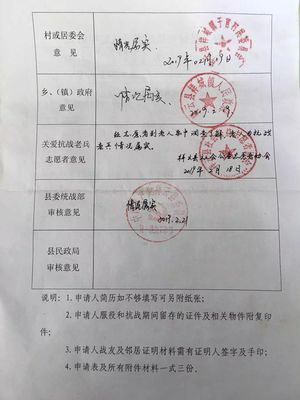 村或居委会
意 见
情况属实
2019年02月19日
乡、(镇)政府
意 见
情况属实.
2019.2.19
关爱抗战老兵
志愿者意见
老兵情况属实.
2019年2月18日
县委统战部
审核意见
情况属实
2019.2.21
县民政局
审核意见
说明:1.申请人简历如不够填写可另附纸张;
2.申请人服役和抗战期间留存的证件及相关物件附复印
件;
3.申请人战友及邻居证明材料需有证明人签字及手印;
4.申请表及所有附件材料一式三份.